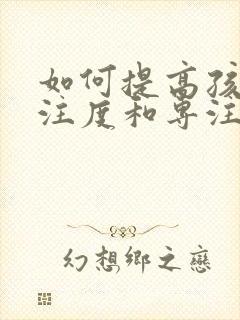 如何提高孩
注度和专注
幻想鄉之戀